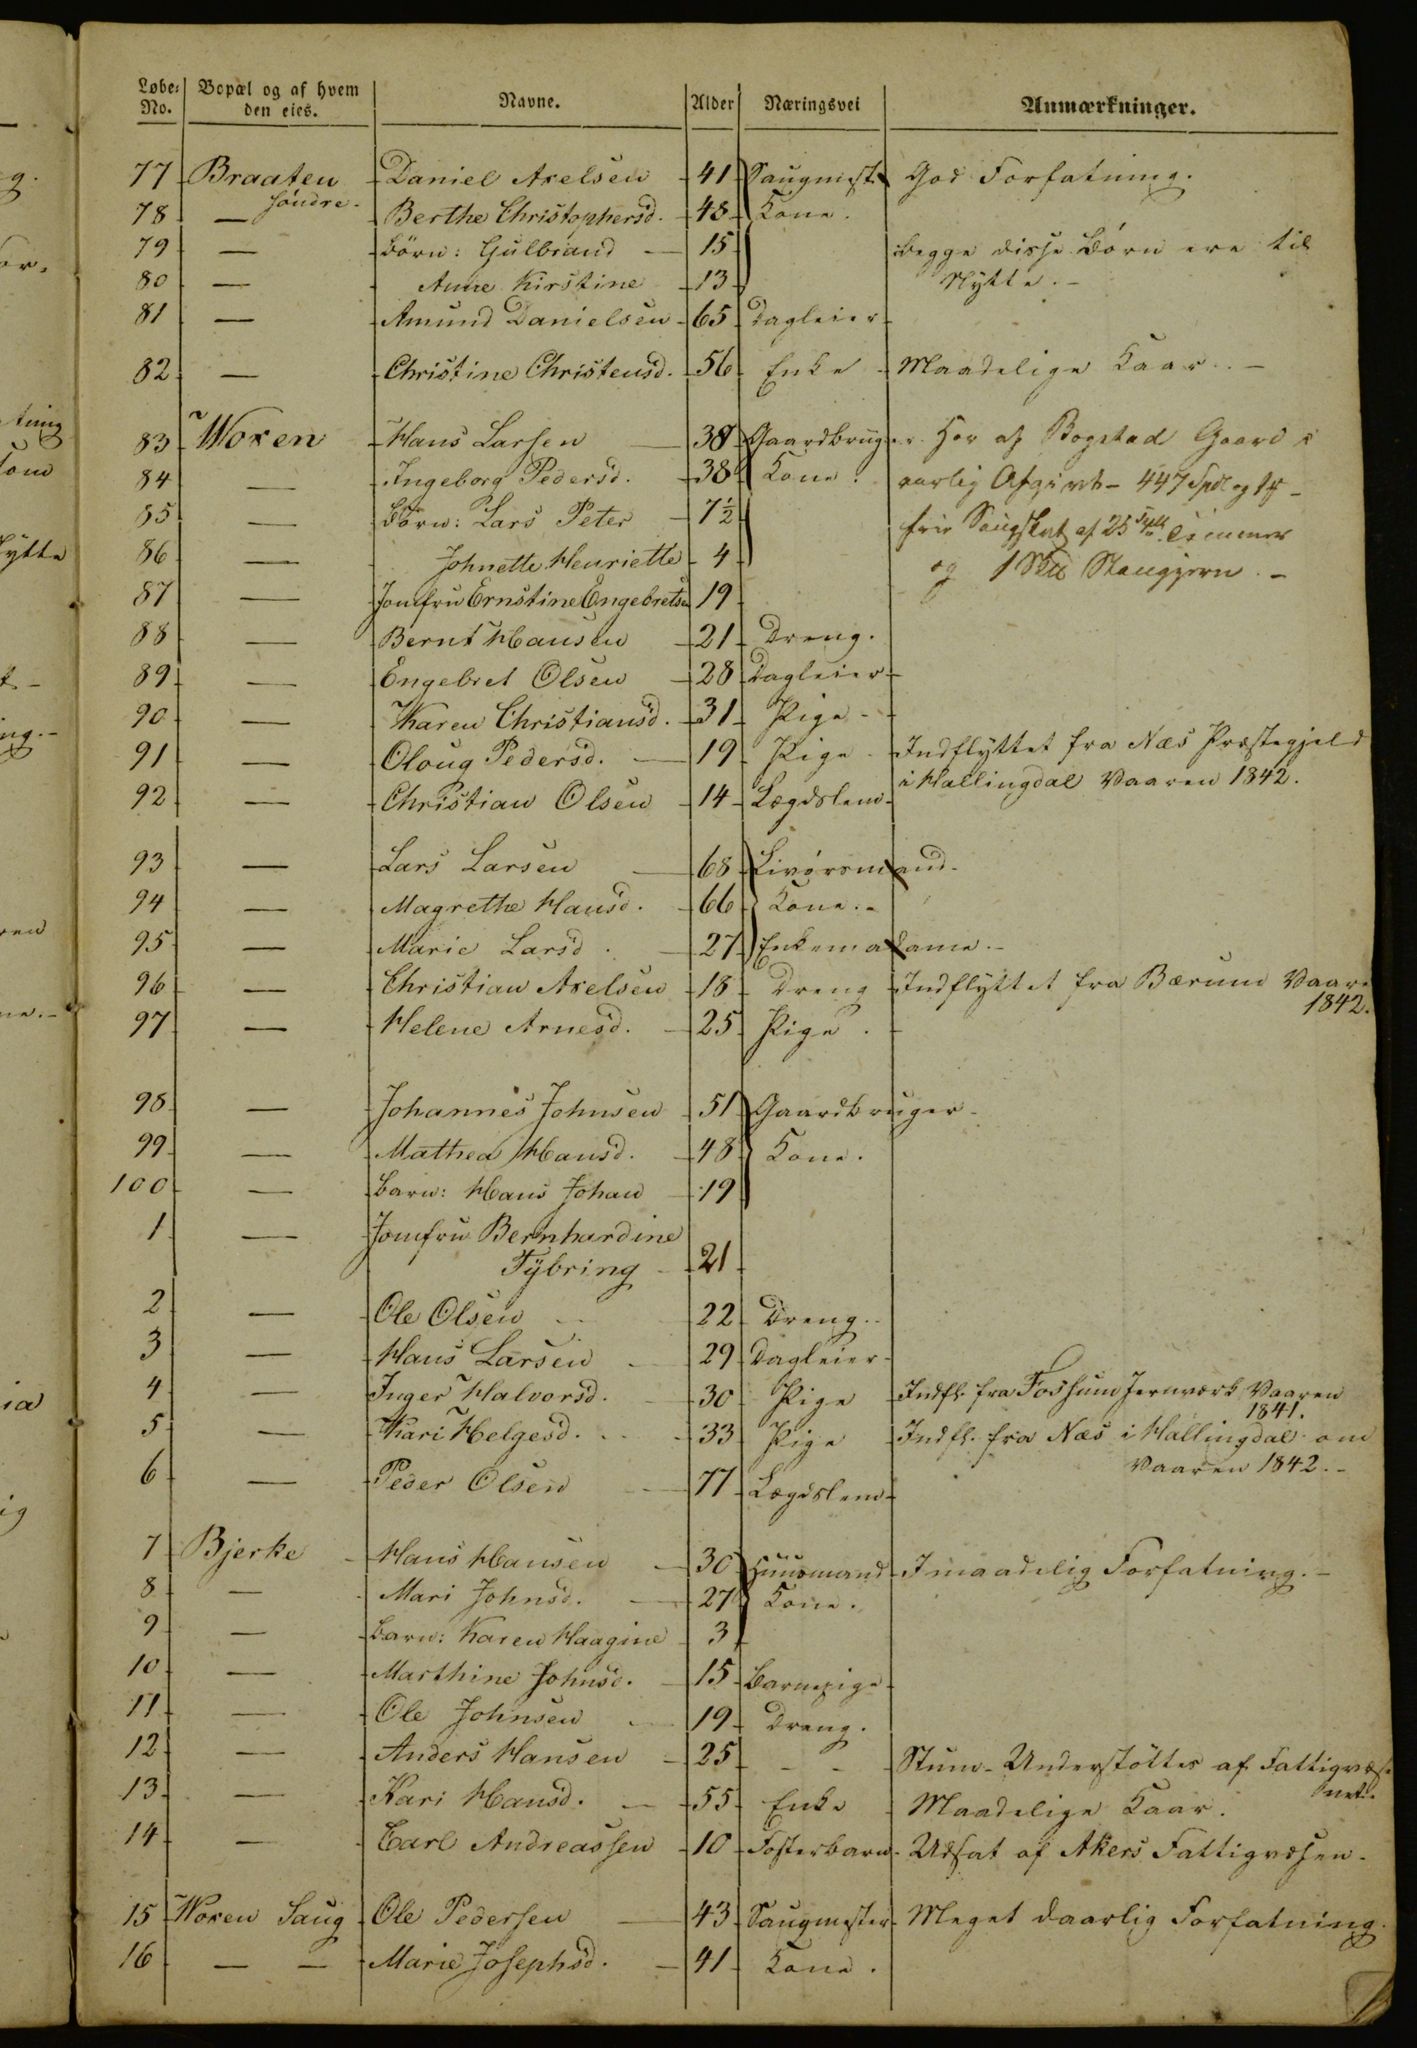 Løbe-No. Bopæl og af hvem den eies. Navne. Alder Næringsvei Anmærkninger.
77 Braaten søndre Daniel Axelsen 41 Saugmest. God Forfatning.
78 — Berthe Christophersd. 48 Kone.
79 — Börn: Gulbrand 15 Begge disse Börn ere til
80 — Anne Kirstine 13 Nytte.
81 — Amund Danielsen 65 Dagleier
82 — Christine Christensd. 56 Enke Maadelige Kaar.
83 Woxen Hans Larsen 38 Gaardbruger. Har af Bogstad Gaard
84 — Ingeborg Pedersd. 38 Kone. aarlig Afgivt
85 — Börn: Lars Peter 7½ frie af 25 Tömmer
86 — Johnette Henriette 4 og 1 Stangjern.
87 — Jomfru Ernstine Engebretsen 19
88 — Bernt Hansen 21 Dreng.
89 — Engebret Olsen 28 Dagleier
90 — Karen Christiansd. 31 Pige
91 — Oloug Pedersd. 19 Pige Indflyttet fra Næs Præstegjeld
92 — Christian Olsen 14 Lægdslem i Hallingdal Vaaren 1842.
93 — Lars Larsen 68 Livörsmand.
94 — Magrethe Hansd. 66 Kone.
95 — Marie Larsd. 27 Enkemadame.
96 — Christian Axelsen 18 Dreng Indflyttet fra Bærum Vaare
1842.
97 — Helene Arnesd. 25 Pige.
98 — Johannes Johnsen 51 Gaardbruger
99 — Mathea Hansd. 48 Kone.
100 — Barn: Hans Johan 19
1 — Jomfru Bernhardine
Tÿbring 21
2 — Ole Olsen 22 Dreng.
3 — Hans Larsen 29 Dagleier
4 — Inger Halvorsd. 30 Pige Indfl. fra Fossum Jernværk Vaaren
1841.
5 — Kari Helgesd. 33 Pige Indfl. fra Næs i Hallingdal om
Vaaren 1842.
6 — Peder Olsen 77 Lægdslem
7 Bjerke Hans Hansen 30 Huusmand I maadelig Forfatning.
8 — Mari Johnsd. 27 Kone.
9 — Barn: Karen Haagine 3
10 — Marthine Johnsd. 15 Barnepige
11 — Ole Johnsen 19 Dreng.
12 — Anders Hansen 25 - - Stum. Understöttes af Fattigvæse
net.
13 — Kari Hansd. 55 Enke Maadelige Kaar.
14 — Carl Andreassen 10 Fosterbarn Udsat af Akers Fattigvæsen.
15 Woxen Saug Ole Pedersen 43 Saugmester Meget daarlig Forfatning.
16 — — Marie Josephsd. 41 Kone.